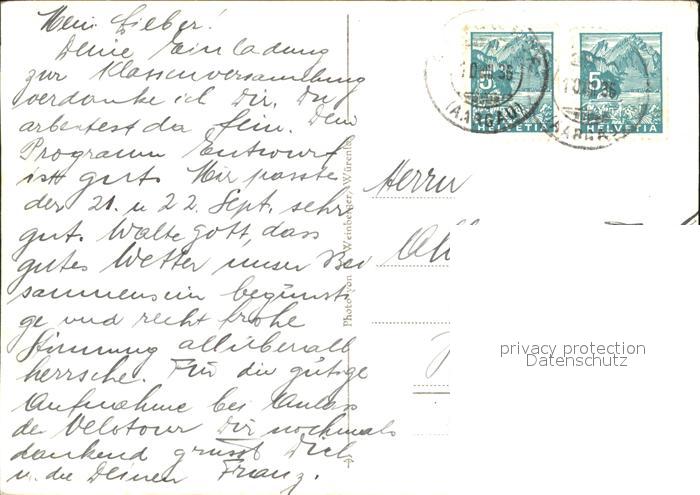 Mein Lieber!
Deine Einladung
zur Klassenversammlung
verdanke ich Dir. Du
arbeitest da fein. Dein
Programm Entwurf
ist gut. Mir passte
der 21. u 22. Sept. sehr
gut. Walte Gott, dass
gutes Wetter unser Bei
sammensein begünsti
ge und recht frohe
Stimmung allüberall
herrsche. Für die gütige
Aufnahme bei Anlass
der Velotour Dir nochmals
dankend grüsst Dich
u. die Deinen Franz.
Photo von Weinberger, Würenlos
Herrn
5
HELVETIA
5
HELVETIA
(AARGAU)
AARGAU
privacy protection
Datenschutz